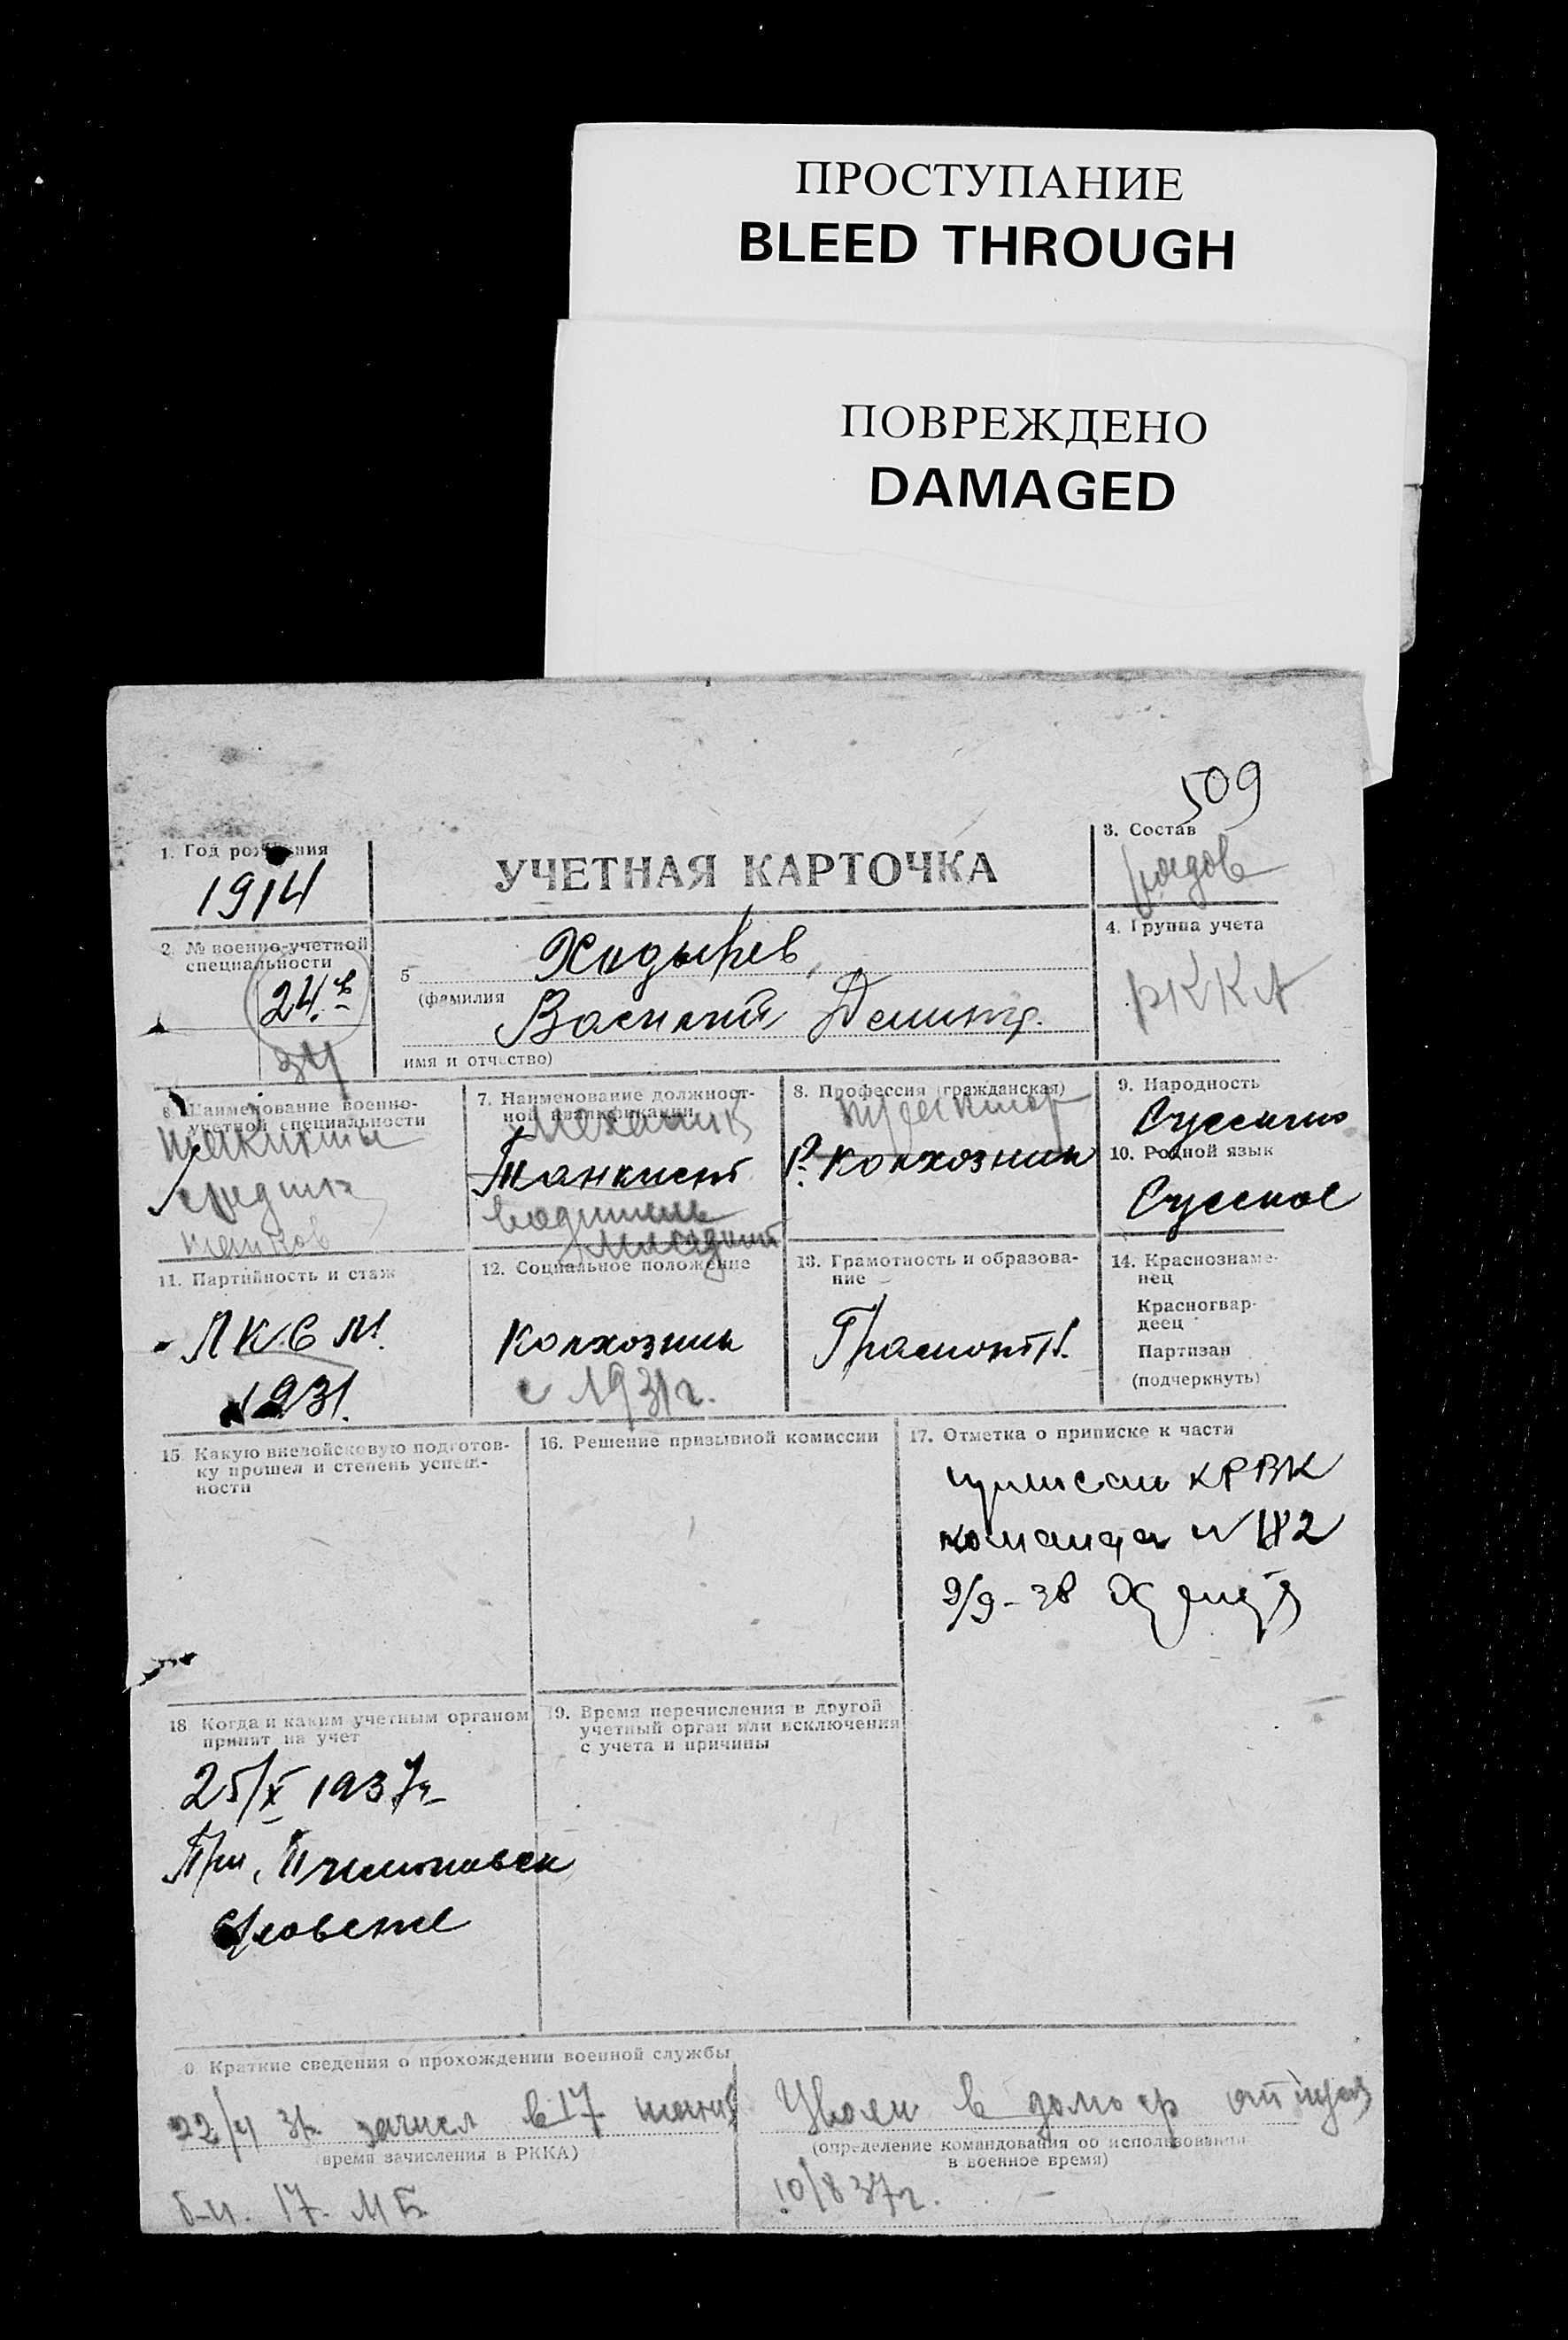 ПРОСТУПАНИЕ
BLEED THROUGH
ПОВРЕЖДЕНО
DAMAGED
509
1. Год рождения
1914
УЧЕТНАЯ КАРТОЧКА
3. Состав
рядов
2. № военно-учетной
специальности
24.в
34
5
(фамилия
Василий Дмитр.
имя и отчество)
4. Группа учета
РККА
6. Наименование военно-
учетной специальности
танкисты
средних
танков
7. Наименование должност-
ной квалификации
механик
Танкист
водитель
младший
8. Профессия (гражданская)
тракторист
Колхозник
9. Народность
10. Родной язык
Русское
11. Партийность и стаж
ЛКСМ.
1931.
12. Социальное положение
Колхозник
с 1931г.
13. Грамотность и образова-
ние
Грамотн.
14. Краснознаме-
нец
Красногвар-
деец
Партизан
(подчеркнуть)
15. Какую вневойсковую подготов-
ку прошел и степень успеш-
ности
16. Решение призывной комиссии
17. Отметка о приписке к части
приписан КРВК
команда №
9/9-38
18 Когда и каким учетным органом
принят на учет
25/X 1937г
19. Время перечисления в другой
учетный орган или исключения
с учета и причины
0. Краткие сведения о прохождении военной службы
зачисл в 17 танк
(время зачисления в РККА)
б-н. 17. МБ
Уволен в долгоср отпуск
(определение командования об использовании
в военное время)
10/8 37г.